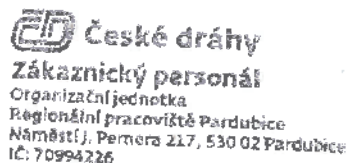 České dráhy
Zákaznický personál
Organizační jednotka
Regionální pracoviště Pardubice
Náměstí J. Pernera 217, 530 02 Pardubice
IČ: 70994226